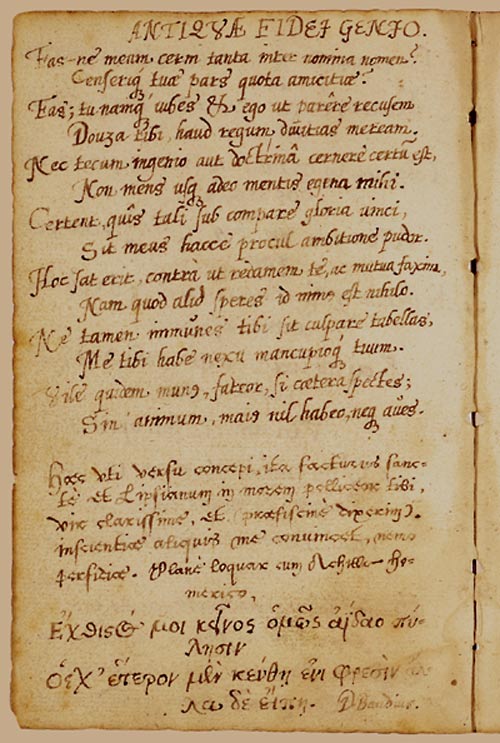 ANTIQVÆ FIDEI GENIO.
Fas-ne meum cerni tanta inter nomina nomen?
Censeriq; tuæ pars quota amicitiæ?
Fas; tu namq; iubes & ego ut parêre recusem
Douza tibi, haud regum divitias meream.
Nec tecum ingenio aut doctrinâ cernere certū est,
Non mens usq; adeo mentis egena mihi.
Certent, quîs tali sub compare gloria vinci,
Sit meus hacce procul ambitione pudor.
Hoc sat erit, contrà ut redamem te, ac mutua faxim,
Nam quod aliud speres id minus est nihilo.
Ne tamen immunes tibi sit culpare tabellas,
Me tibi habe nexu mancupioq; tuum.
Vile quidem munus, fateor, si cætera spectes;
Sin animum, maius nil habeo, neq; aves.
Hæc vti versu concepi, ita facturus sanc-
te et Lipsianum in morem polliceor tibi,
vir clarissime, et (præfiscine dixerim).
inscientiæ aliquis me conuincet, nemo
perfidiæ. Planè loquar cum Achille Ho-
merico,
Ἐχθρὸς μοι κεῖνος ὁμῶς ἀΐδαο πύ-
λησιν
Ὅς χ' ἕτερον μὲν κεύθῃ ἐνι φρεσὶν ἄλ-
λα δὲ εἴπῃ. D. Baudius.